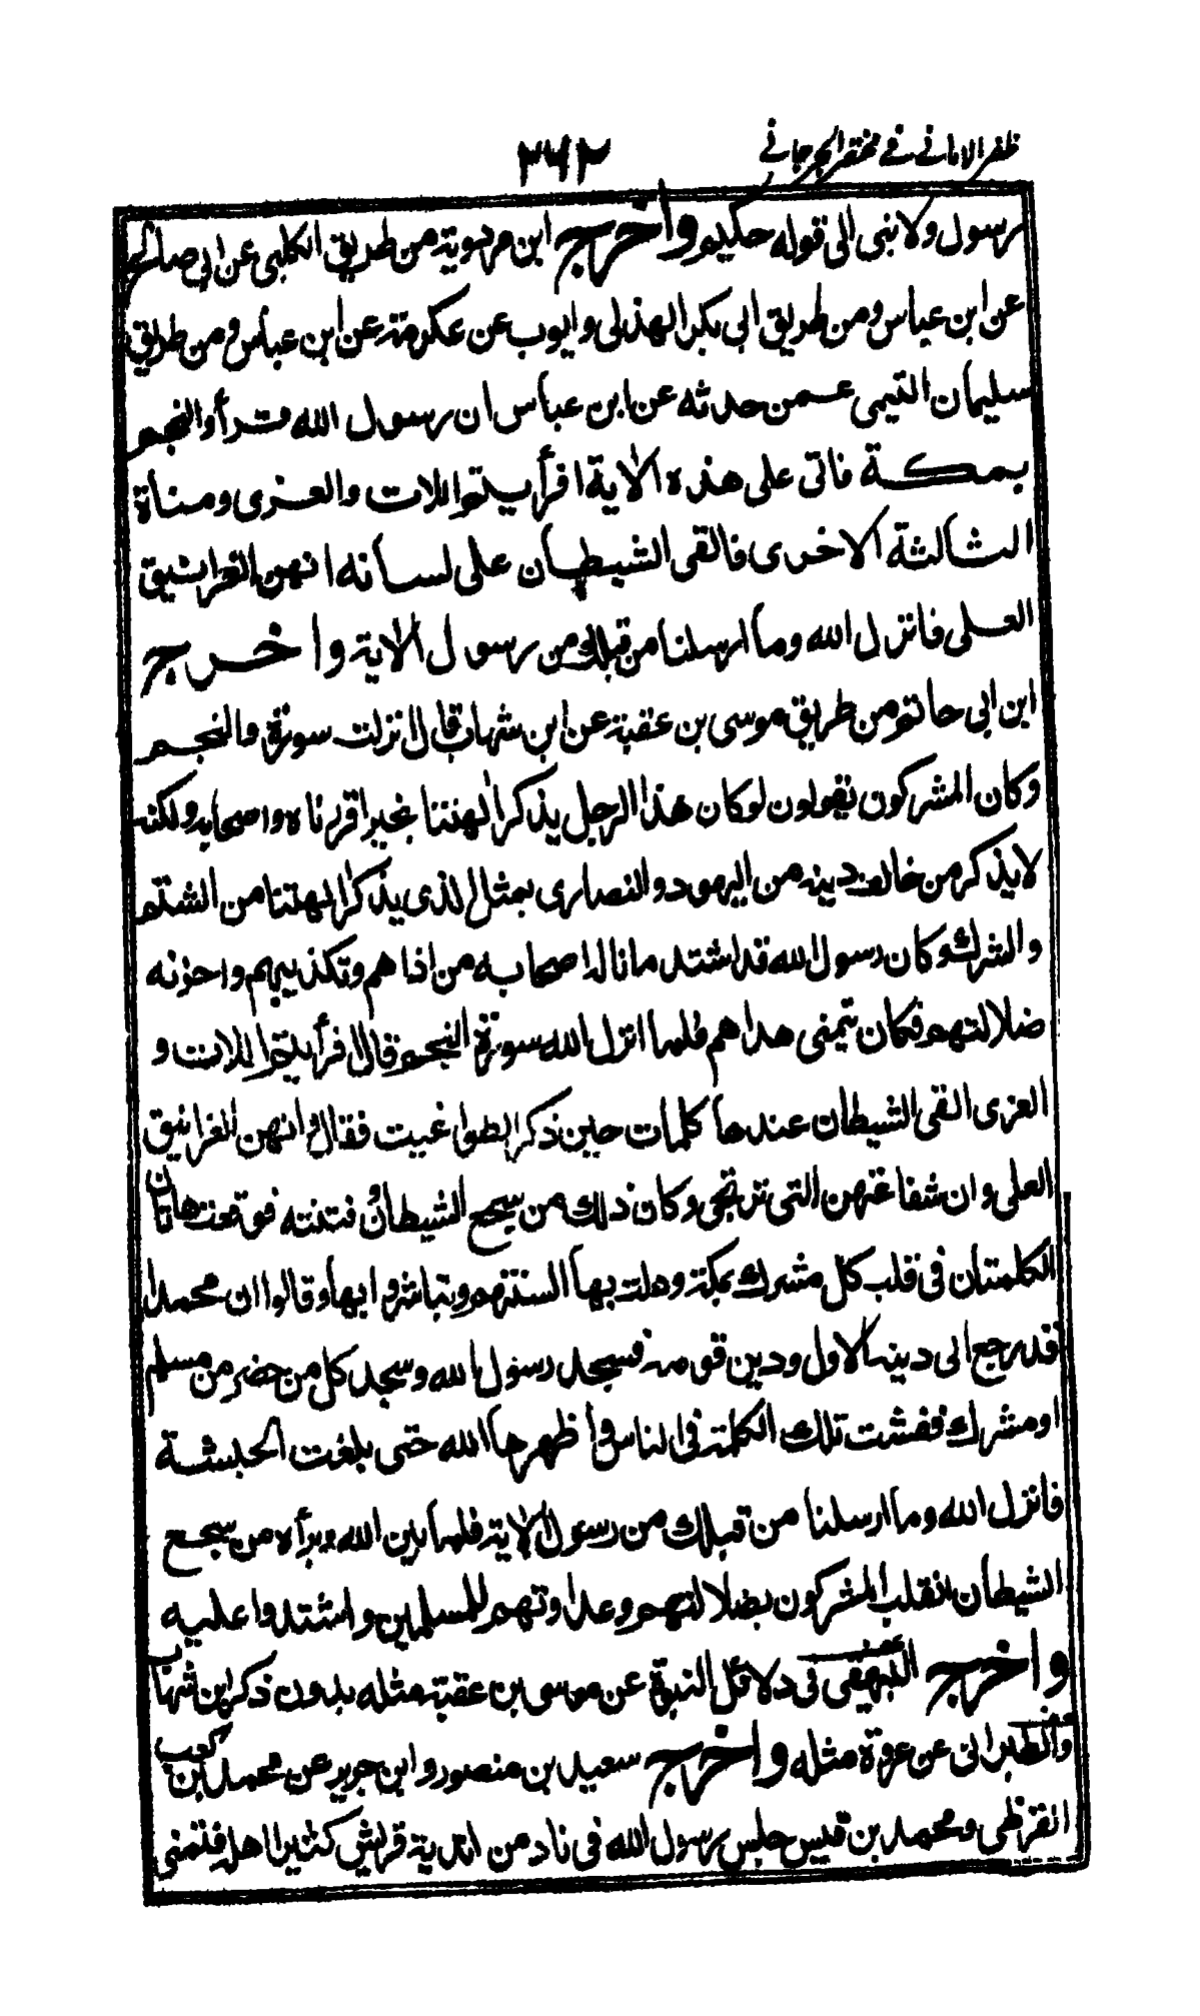 ظفر الامانی فی مختصر الجرجانی ٣٦٢
رسول ولا نبى الى قوله حكيم واخرج ابن مردوية من طريق الكلبى عن ابى صالح
عن ابن عباس ومن طريق ابى بكر الهذلى وايوب عن عكرمة عن ابن عباس ومن طريق
سليمان التيمى عمن حدثه عن ابن عباس ان رسول الله قرأ والنجم
بمكة فاتى على هذه الاية افرأيتم اللات والعزى ومناة
الثالثة الاخرى فالقى الشيطان على لسانه انهن الغرانيق
العلى فانزل الله وما ارسلنا من قبلك من رسول الاية واخرج
ابن ابى حاتم من طريق موسى بن عقبة عن ابن شهاب قال انزلت سورة والنجم
وكان المشركون يقولون لو كان هذا الرجل يذكر الهتنا بخير اقررناه واصحابه ولكنه
لا يذكر من خالف دينه من اليهود والنصارى بمثل الذى يذكر الهتنا من الشتم
والشرك وكان رسول الله قد اشتد ما ناله اصحابه من اذاهم وتكذيبهم واحزنه
ضلالتهم فكان يتمنى هداهم فلما انزل الله سورة النجم قال افرأيتم اللات و
العزى القى الشيطان عندها كلمات حين ذكر الطواغيت فقال وانهن الغرانيق
العلى وان شفاعتهن التى ترتجى وكان ذلك من سجع الشيطان وفتنته فوقعت هاتان
الكلمتان فى قلب كل مشرك بمكة وذلت بها السنتهم وتباشروا بها وقالوا ان محمدا
قد رجع الى دينه الاول ودين قومه فسجد رسول الله وسجد كل من حضر من مسلم
او مشرك ففشت تلك الكلمة فى الناس واظهرها الله حتى بلغت الحبشة
فانزل الله وما ارسلنا من قبلك من رسول الاية فلما بين الله وبرأه من سجع
الشيطان انقلب المشركون بضلالتهم وعداوتهم للمسلمين واشتدوا عليه
واخرج البيهقى فى دلائل النبوة عن موسى بن عقبة مثله بدون ذكر ابن شهاب
والطبرانى عن عروة مثله واخرج سعيد بن منصور وابن جرير عن محمد بن كعب
القرظى ومحمد بن قيس جلس رسول الله فى ناد من اندية قريش كثيرا اهله فتمنى